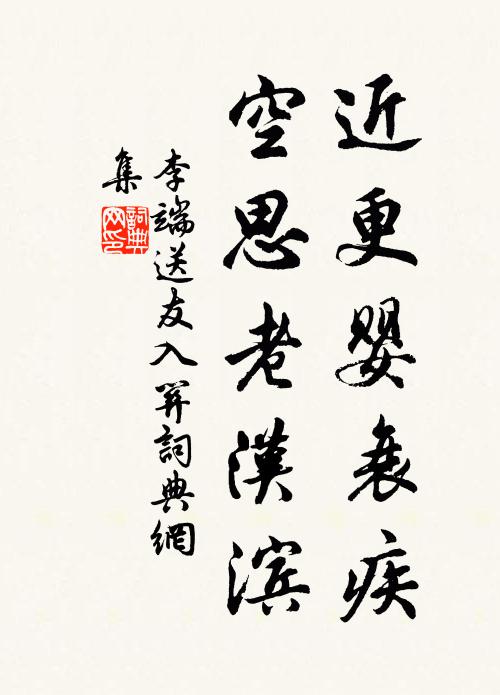 近更婴衰疾
空思老漢滨
李端送友入關詞典網
集
詞典網印